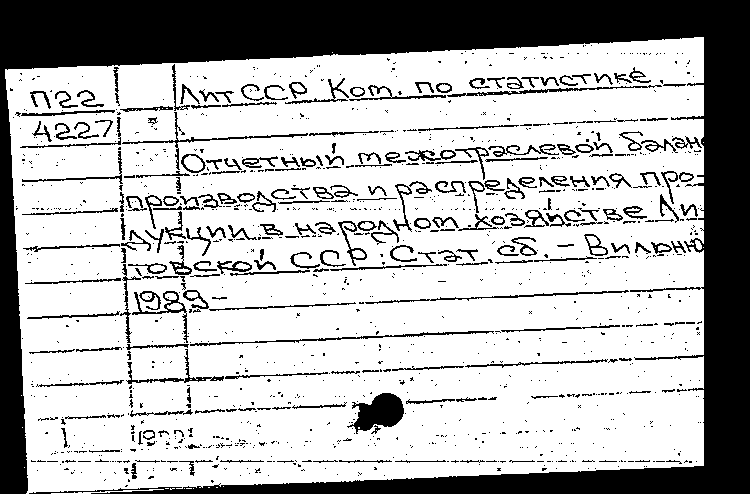 П22 ЛитССР Ком. по статистике.
4227
Отчетный межотраслевой балан
производства и распределения про-
дукции в народном хозяйстве Ли
товской ССР: Стат. сб. – Вильню
1989–
1